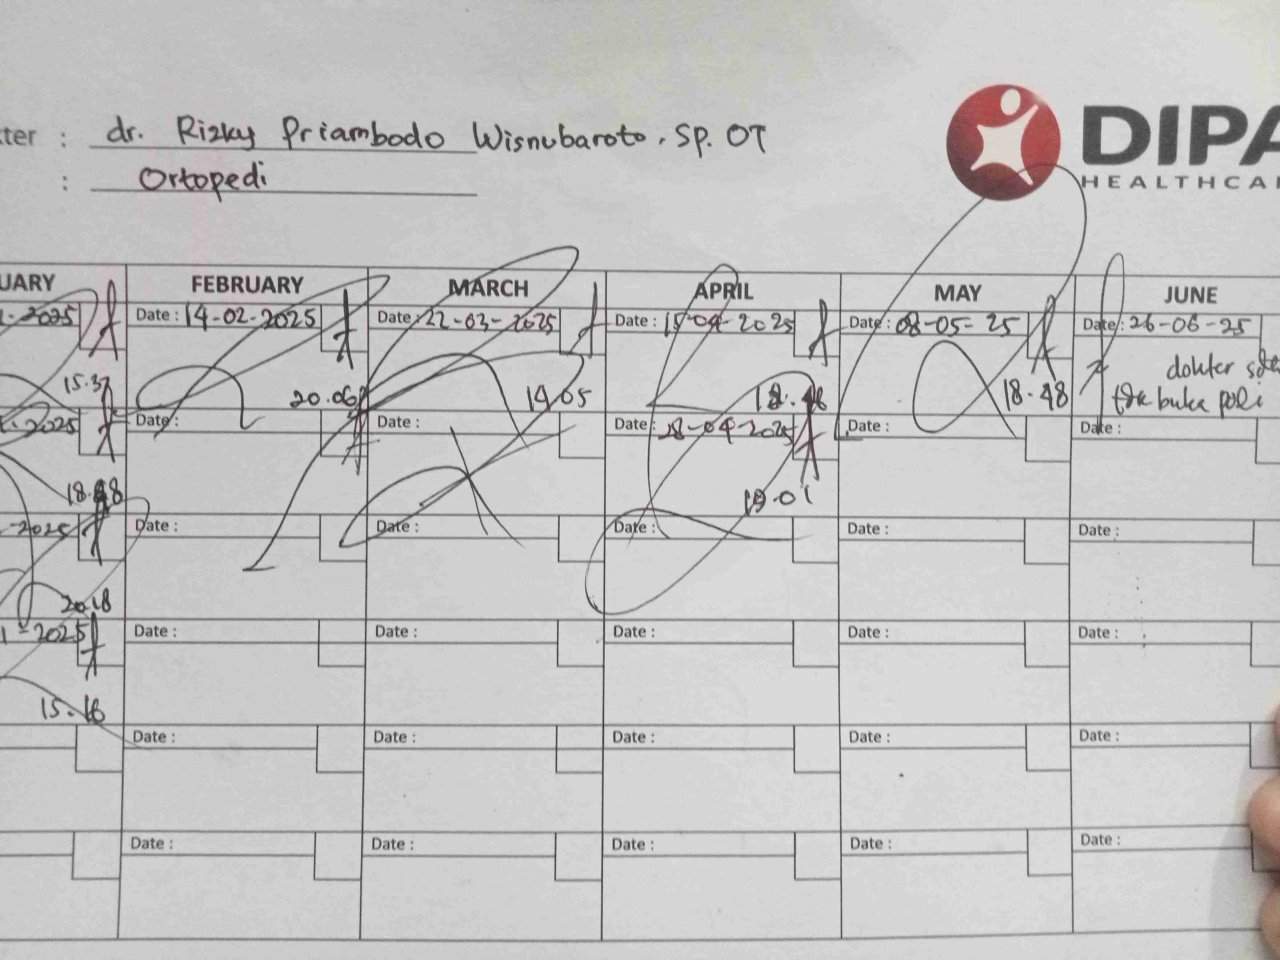 ter : dr. Rizky Priambodo Wisnubaroto, Sp. OT
: Ortopedi
DIPA
HEALTHCA
UARY FEBRUARY MARCH APRIL MAY JUNE
-2025 Date : 14-02-2025 Date : 22-03-2025 Date : 15-04-2025 Date : 08-05-25 Date : 26-06-25
15.37 20.06 19.05 18.48 dokter
buka poli
-2025 Date : Date : Date : 28-04-2025 Date : Date :
18.48 19.01
-2025 Date : Date : Date : Date : Date :
20.18
1-2025 Date : Date : Date : Date : Date :
15.16
Date : Date : Date : Date : Date :
Date : Date : Date : Date : Date :